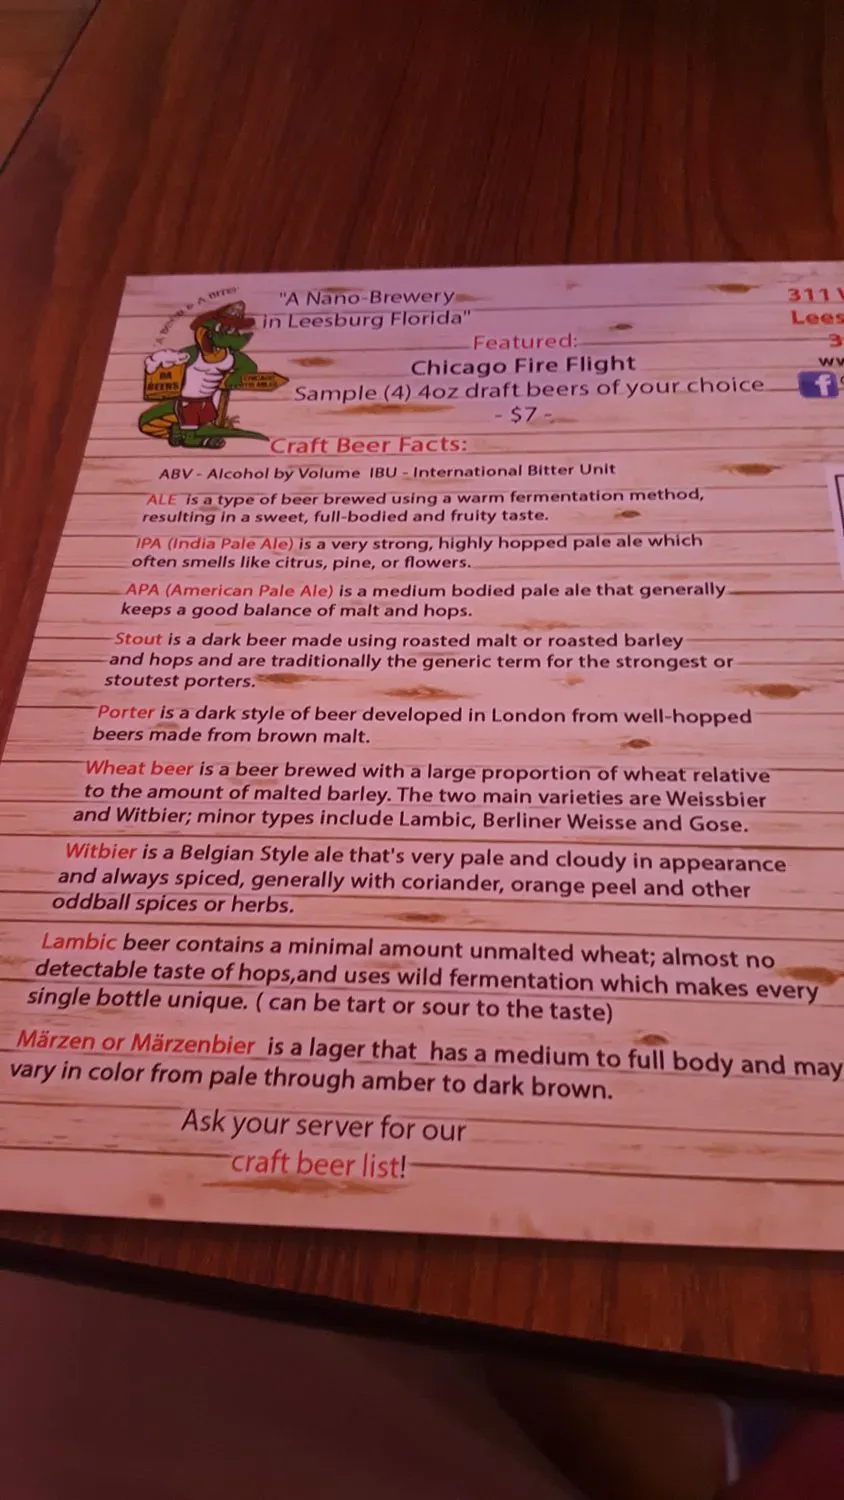 "A Nano-Brewery
in Leesburg Florida"
311
Lees
3
ww
f
DA
BEERS
Featured:
Chicago Fire Flight
Sample (4) 4oz draft beers of your choice
- $7 -
Craft Beer Facts:
ABV - Alcohol by Volume IBU - International Bitter Unit
ALE is a type of beer brewed using a warm fermentation method,
resulting in a sweet, full-bodied and fruity taste.
IPA (India Pale Ale) is a very strong, highly hopped pale ale which
often smells like citrus, pine, or flowers.
APA (American Pale Ale) is a medium bodied pale ale that generally
keeps a good balance of malt and hops.
Stout is a dark beer made using roasted malt or roasted barley
and hops and are traditionally the generic term for the strongest or
stoutest porters.
Porter is a dark style of beer developed in London from well-hopped
beers made from brown malt.
Wheat beer is a beer brewed with a large proportion of wheat relative
to the amount of malted barley. The two main varieties are Weissbier
and Witbier; minor types include Lambic, Berliner Weisse and Gose.
Witbier is a Belgian Style ale that's very pale and cloudy in appearance
and always spiced, generally with coriander, orange peel and other
oddball spices or herbs.
Lambic beer contains a minimal amount unmalted wheat; almost no
detectable taste of hops,and uses wild fermentation which makes every
single bottle unique. ( can be tart or sour to the taste)
Märzen or Märzenbier is a lager that has a medium to full body and may
vary in color from pale through amber to dark brown.
Ask your server for our
craft beer list!